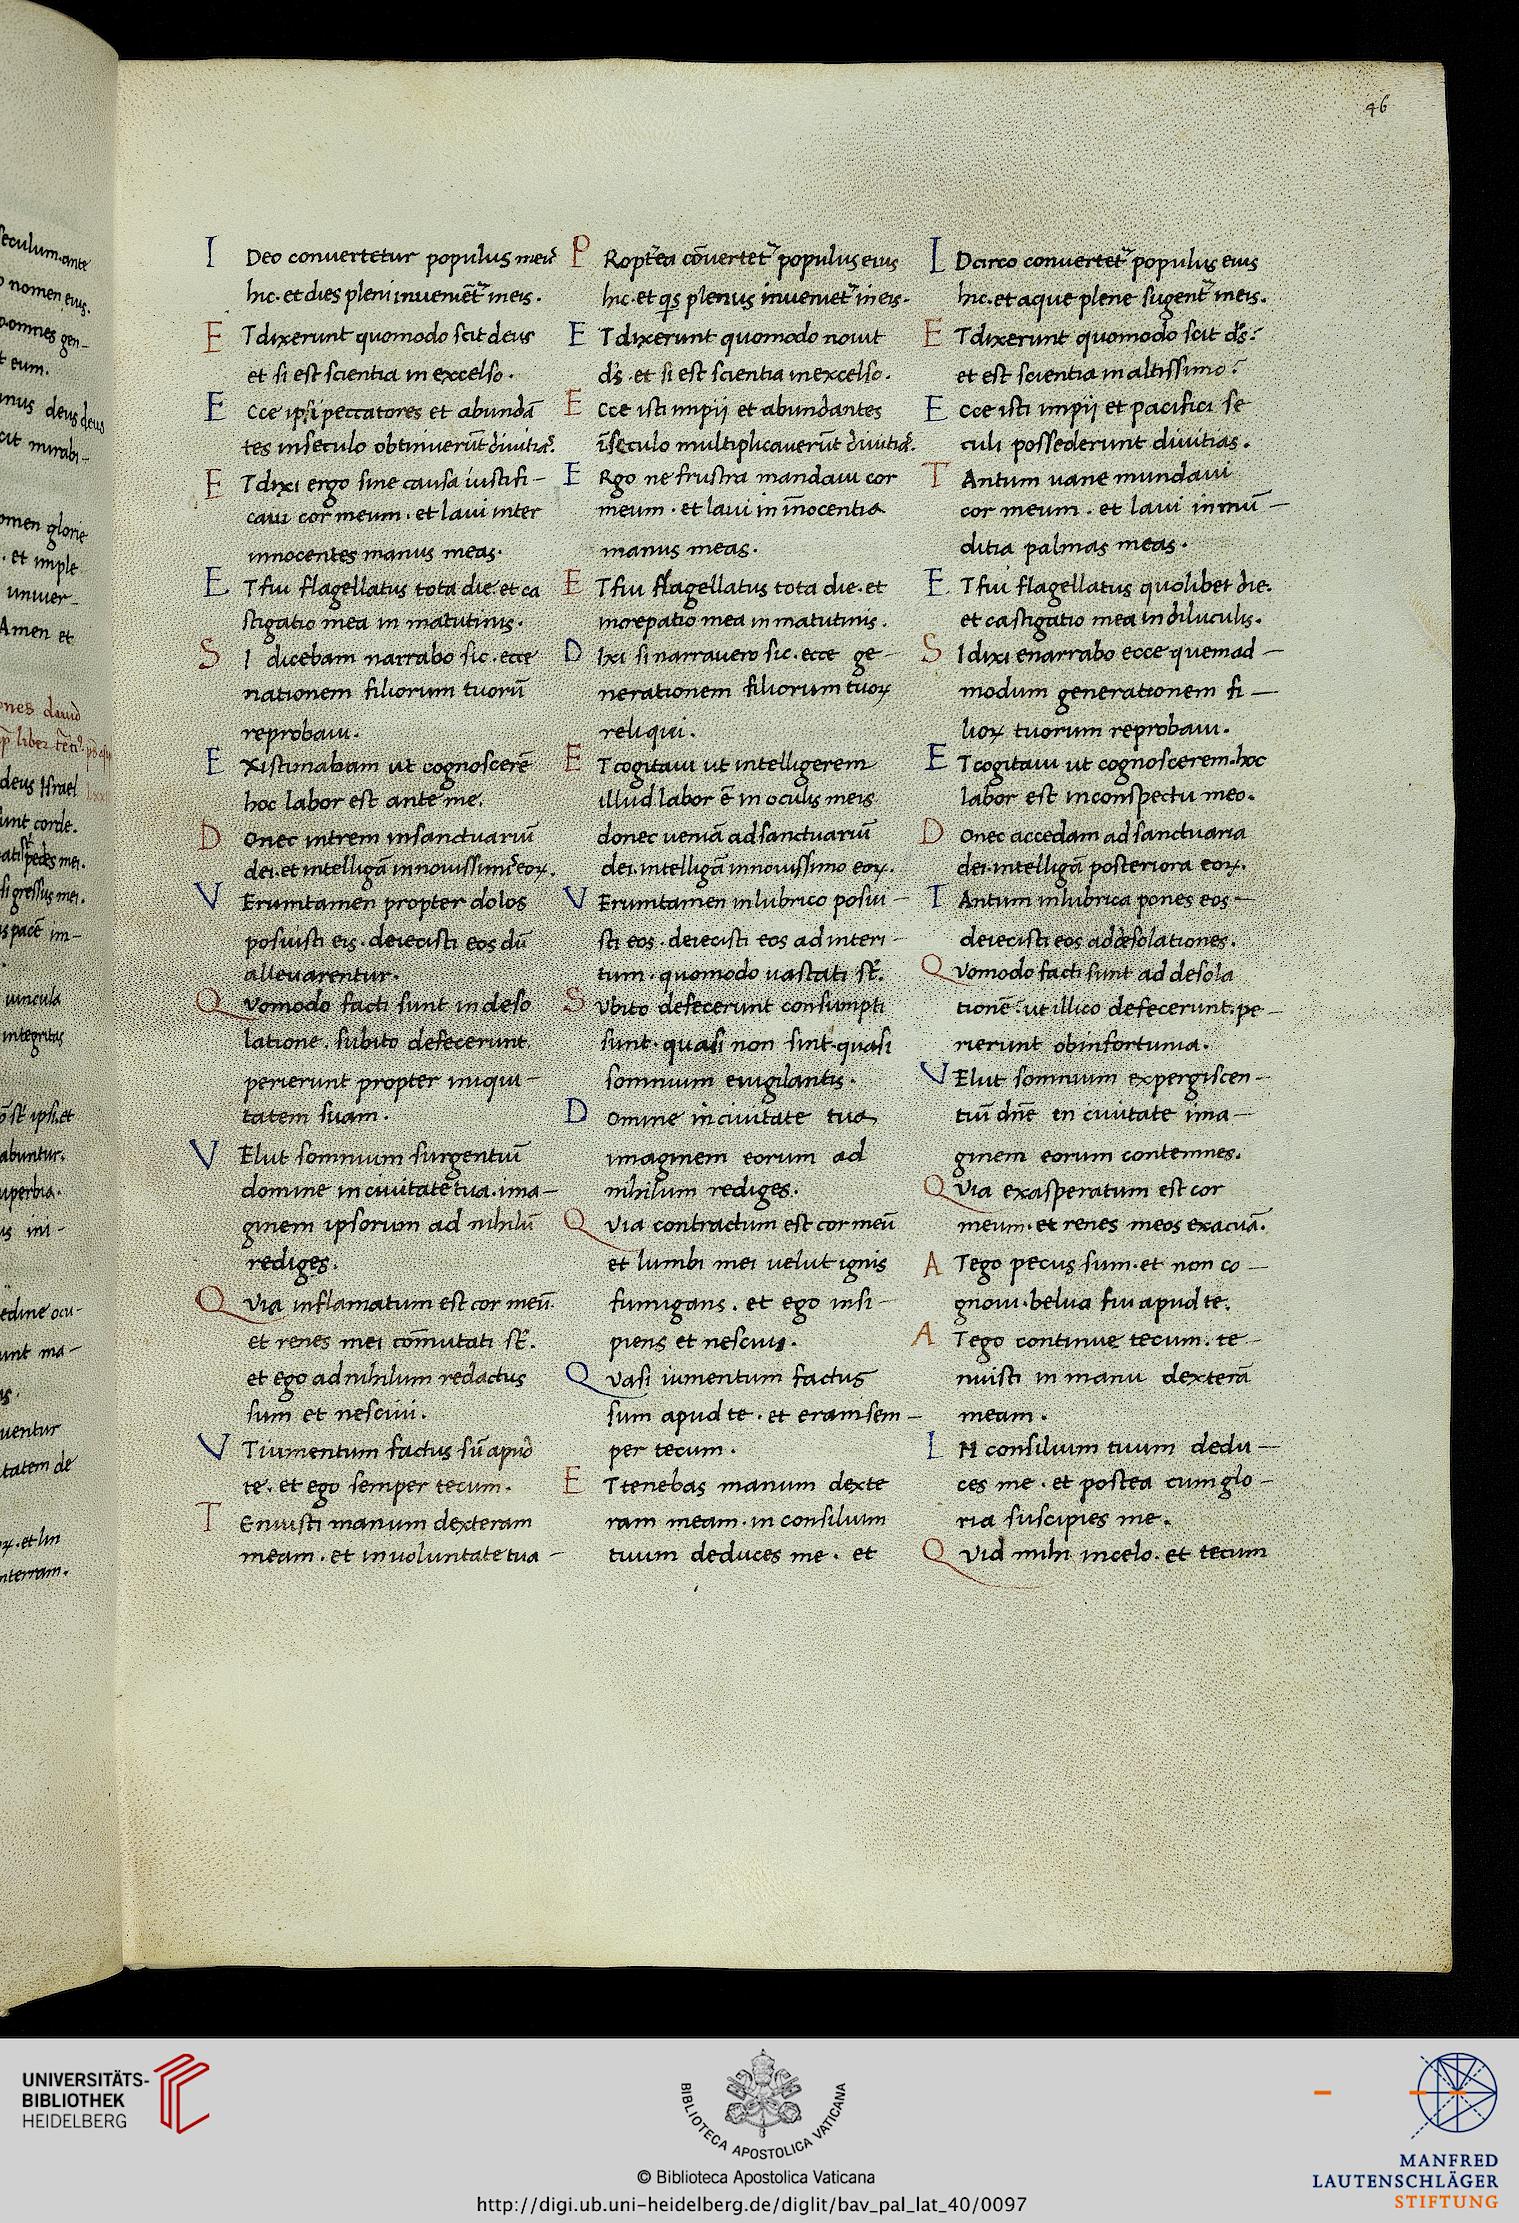 46
I Deo convertetur populus meus̃
hic. et dies pleni invenient̃ in eis.
E T dixerunt quomodo scit deus
et si est scientia in excelso.
E cce ipsi peccatores et abundã
tes in seculo obtinuerũt divitias.
E T dixi ergo sine causa iustifi-
cavi cor meum. et lavi inter
innocentes manus meas.
E T fui flagellatus tota die. et ca
stigatio mea in matutinis.
S I dicebam narrabo sic. ecce
nationem filiorum tuorũ
reprobavi.
E xistimabam ut cognoscerẽ
hoc labor est ante me.
D onec intrem in sanctuariũ
dei. et intelligã in novissimis eoꝝ.
V Erumtamen propter dolos
posuisti eis. deiecisti eos dũ
allevarentur.
Q vomodo facti sunt in deso
latione. subito defecerunt
perierunt propter iniqui-
tatem suam.
V Elut somnium surgentiũ
domine in civitate tua. ima-
ginem ipsorum ad nihilũ
rediges.
Q via inflamatum est cor meũ.
et renes mei cõmutati st̃.
et ego ad nihilum redactus
sum et nescivi.
V T iumentum factus sũ apud
te. et ego semper tecum.
T Enuisti manum dexteram
meam. et in voluntate tua -
P Ropt̃ea cõvertet̃ populus eius
hic. et q̃s plenus inveniet̃ in eis.
E T dixerunt quomodo novit
d̃s. et si est scientia in excelso.
E cce isti impij et abundantes
ĩ seculo multiplicaverũt divitias.
E Rgo ne frustra mandavi cor
meum. et lavi in ĩnocentia
manus meas.
E T fui flagellatus tota die. et
increpatio mea in matutinis.
D Ixi si narravero sic. ecce ge-
nerationem filiorum tuoꝝ
reliqui.
E T cogitavi ut intelligerem
illud labor ẽ in oculis meis
donec veniã ad sanctuariũ
dei. intelligã in novissimo eoꝝ.
V Erumtamen in lubrico posui-
sti eos. deiecisti eos ad interi-
tum. quomodo vastati st̃.
S Vbito defecerunt consumpti
sunt. quasi non sint. quasi
somnium evigilantis.
D omine in civitate tua
imaginem eorum ad
nihilum rediges.
Q via contractum est cor meũ
et lumbi mei velut ignis
fumigans. et ego insi-
piens et nescius.
Q vasi iumentum factus
sum apud te. et eram sem-
per tecum.
E T tenebas manum dexte
ram meam. in consilium
tuum deduces me. et
I Dcirco convertet̃ populus eius
hic. et aque plene sugent̃ in eis.
E T dixerunt quomodo scit d̃s?
et est scientia in altissimo?
E cce isti impij et pacifici se
culi possederunt divitias.
T Antum vane mundavi
cor meum. et lavi in mũ-
ditia palmas meas.
E T fui flagellatus quolibet die.
et castigatio mea in diluculis.
S I dixi enarrabo ecce quemad-
modum generationem fi-
lioꝝ tuorum reprobavi.
E T cogitavi ut cognoscerem. hoc
labor est in conspectu meo.
D onec accedam ad sanctuaria
dei. intelligã posteriora eoꝝ.
T Antum in lubrica pones eos-
deiecisti eos ad desolationes.
Q vomodo facti sunt ad desola
tionẽ. ut illico defecerunt. pe-
rierunt ob infortunia.
V Elut somnium expergiscen-
tiũ dñe en civitate ima-
ginem eorum contemnes.
Q via exasperatum est cor
meum. et renes meos exacuã.
A T ego pecus sum. et non co-
gnovi. belua fui apud te.
A T ego continue tecum. te-
nuisti in manu dexterã
meam.
I N consilium tuum dedu-
ces me. et postea cum glo-
ria suscipies me.
Q vid mihi in celo. et tecum
UNIVERSITÄTS-
BIBLIOTHEK
HEIDELBERG
BIBLIOTECA APOSTOLICA VATICANA
© Biblioteca Apostolica Vaticana
http://digi.ub.uni-heidelberg.de/diglit/bav_pal_lat_40/0097
MANFRED
LAUTENSCHLÄGER
STIFTUNG